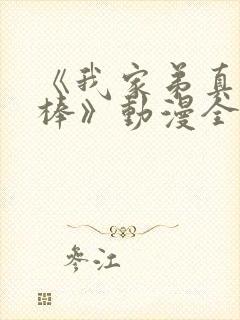 《我家弟真
棒》動漫全
參江